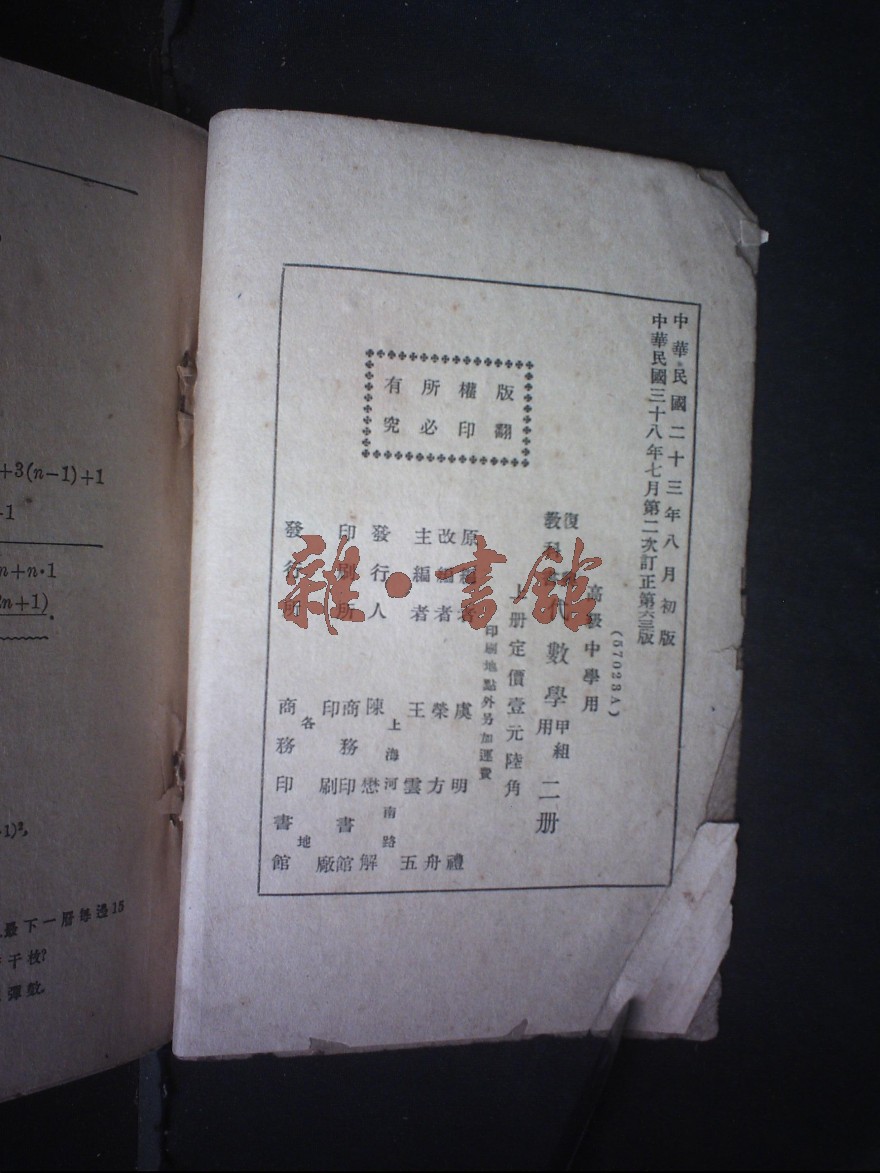 中華民國二十三年八月初版
中華民國三十八年七月第二次訂正第六三版
(57023A)
高級中學用
復興教科書 代數學 甲組用 二册
上册定價壹元陸角
印刷地點外另加運費
版權所有
翻印必究
原編者 虞明禮
改編者 榮方舟
主編者 王雲五
發行人 陳懋解
上海河南路
印刷所 商務印書館印刷廠
發行所 商務印書館
各地
雜·書館
+3(n-1)+1
n+n·1
2n+1)
最下一層每邊15
干枚?
彈數.